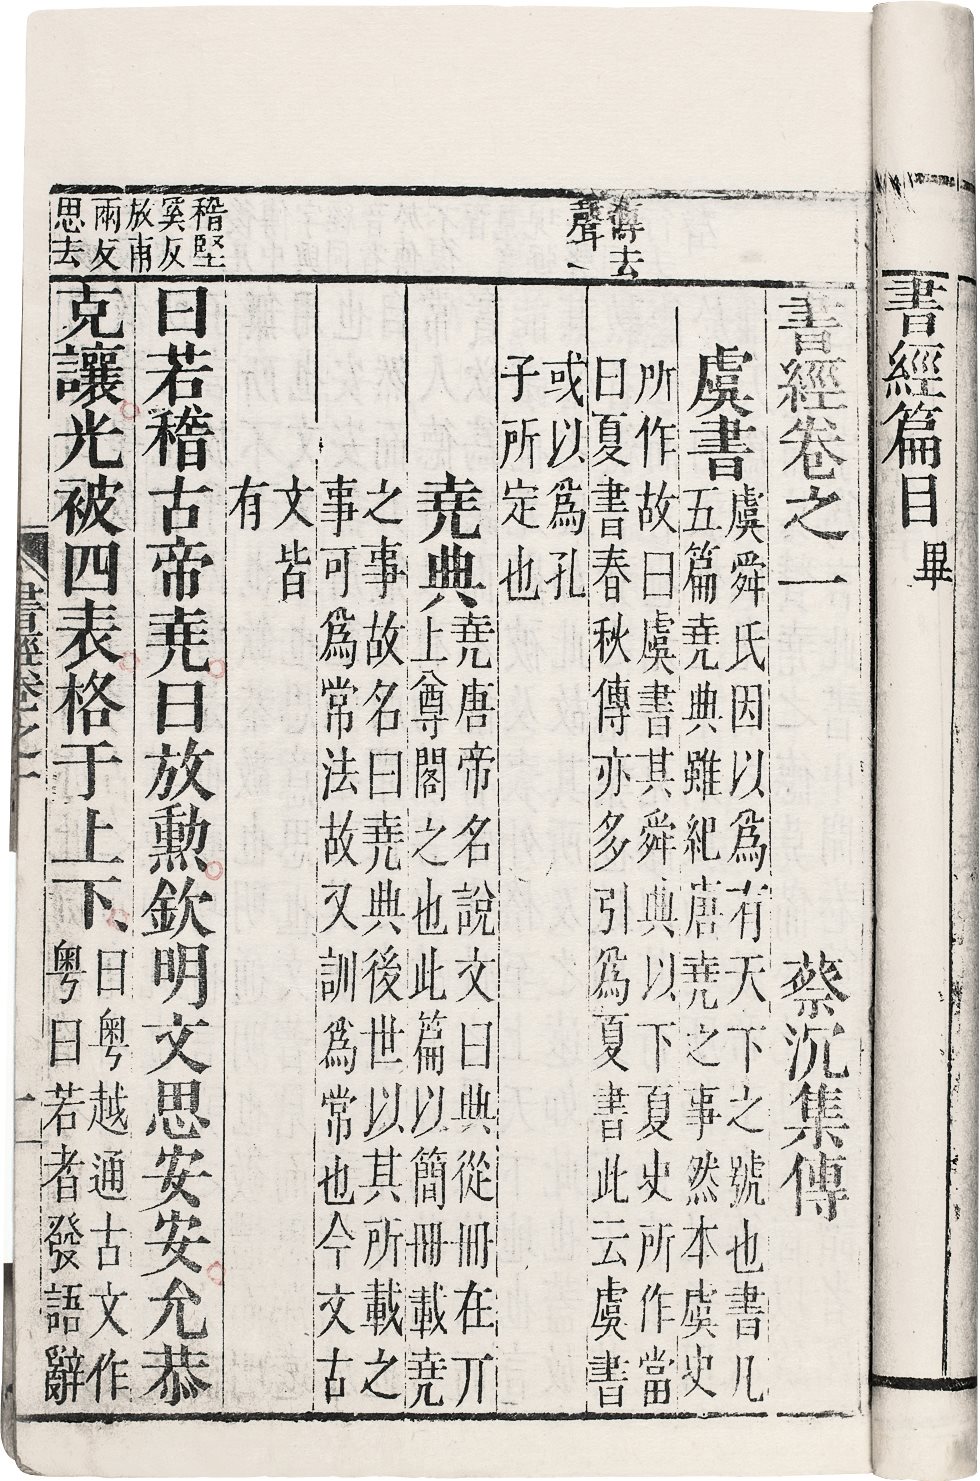 書經篇目畢
書經卷之一
蔡沉集傳
傳去
聲
虞書
虞舜氏因以爲有天下之號也書凡
五篇堯典雖紀唐堯之事然本虞史
所作故曰虞書其舜典以下夏史所作當
曰夏書春秋傳亦多引爲夏書此云虞書
或以爲孔
子所定也
堯典
堯唐帝名說文曰典從冊在丌
上尊閣之也此篇以簡冊載堯
之事故名曰堯典後世以其所載之
事可爲常法故又訓爲常也今文古
文皆
有
稽堅
奚反
放甫
兩反
思去
曰若稽古帝堯曰放勳欽明文思安安允恭
克讓光被四表格于上下
曰粵越通古文作
粵曰若者發語辭
書經卷之一
一